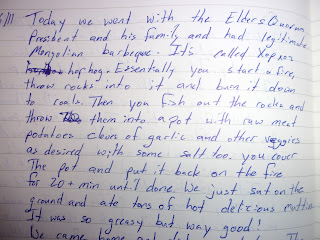 6/11 Today we went with the Elders Quorum
President and his family and had legitimate
Mongolian barbeque. It's called Хорхог
horhog. Essentially you start a fire,
throw rocks into it and burn it down
to coals. Then you fish out the rocks and
throw them into a pot with raw meat
potatoes cloves of garlic and other veggies
as desired with some salt too. you cover
The pot and put it back on the fire
for 20+ min until done. We just sat on the
ground and ate tons of hot delicious mutton
It was so greasy but way good!
We came home and